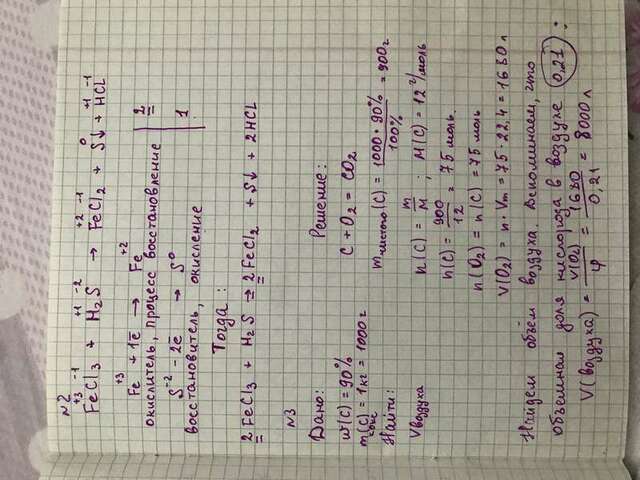 №2
+3 -1 +1 -2 +2 -1 0 +1 -1
FeCl₃ + H₂S → FeCl₂ + S↓ + HCL
+3 +2
Fe + 1ē → Fe | 2
окислитель, процесс восстановление
S⁻² - 2ē → S⁰ | 1
восстановитель, окисление
Тогда:
2FeCl₃ + H₂S ⇒ 2FeCl₂ + S↓ + 2HCL
№3
Дано:
w(C) = 90%
m(C) = 1кг = 1000г
кокс
Найти:
Vвоздуха
Решение:
C + O₂ = CO₂
mчистого(C) = 1000 · 90% / 100% = 900г
n(C) = m/M ; M(C) = 12 г/моль
n(C) = 900/12 = 75 моль.
n(O₂) = n(C) = 75 моль
V(O₂) = n · Vm = 75 · 22,4 = 1680 л
Найдем объём воздуха. Вспоминаем, что
объемная доля кислорода в воздухе 0,21:
V(воздуха) = V(O₂)/φ = 1680/0,21 = 8000 л